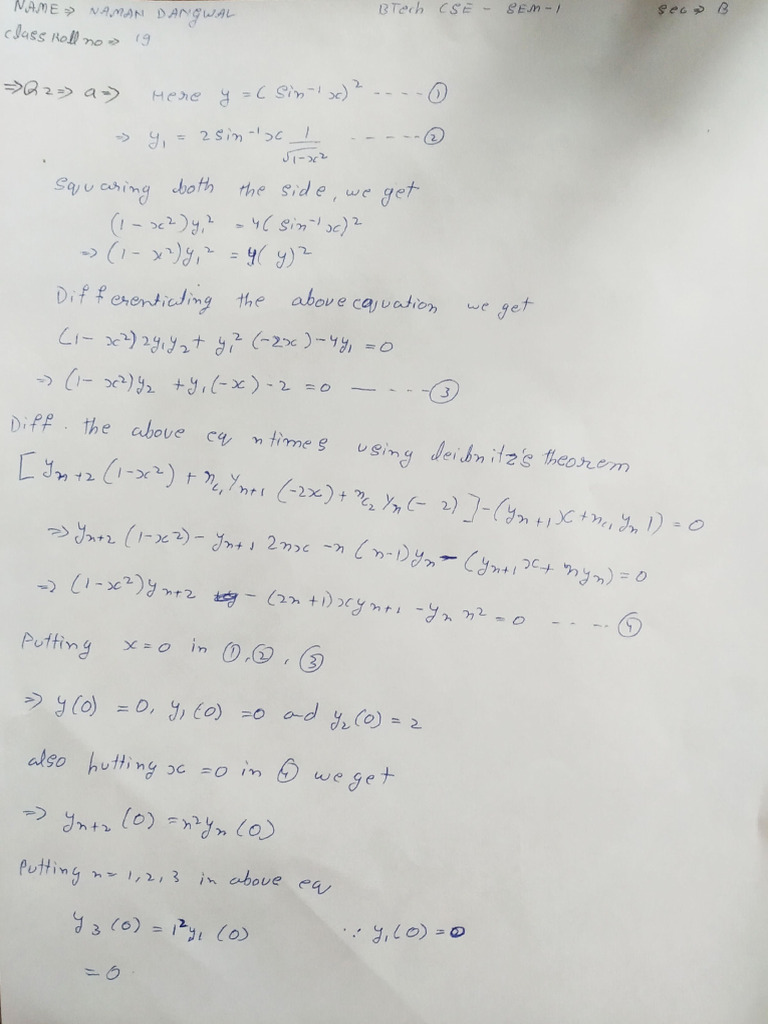 NAME ⇒ NAMAN DANGWAL BTech CSE - SEM-1 sec ⇒ B
Class Roll no ⇒ 19
⇒ Q2 ⇒ a ⇒ Here y = (Sin⁻¹x)² ---- ①
⇒ y₁ = 2 sin⁻¹x 1/√1-x² ----- ②
Squaring both the side, we get
(1-x²)y₁² = 4(sin⁻¹x)²
⇒ (1-x²)y₁² = 4(y)²
Differentiating the above equation we get
(1-x²)2y₁y₂ + y₁²(-2x) - 4y₁ = 0
⇒ (1-x²)y₂ + y₁(-x) - 2 = 0 — ---- ③
Diff. the above eq n times using leibnitz's theorem
[yₙ₊₂(1-x²) + ⁿc₁ yₙ₊₁(-2x) + ⁿc₂ yₙ(-2)] - (yₙ₊₁x + ⁿc₁ yₙ 1) = 0
⇒ yₙ₊₂(1-x²) - yₙ₊₁ 2nx - n(n-1)yₙ - (yₙ₊₁x + nyₙ) = 0
⇒ (1-x²)yₙ₊₂ - (2n+1)xyₙ₊₁ - yₙ n² = 0 ---- ④
Putting x=0 in ①, ②, ③
⇒ y(0) = 0, y₁(0) = 0 and y₂(0) = 2
also putting x = 0 in ④ we get
⇒ yₙ₊₂(0) = n²yₙ(0)
Putting n = 1, 2, 3 in above eq
y₃(0) = 1²y₁(0) ∵ y₁(0) = 0
= 0